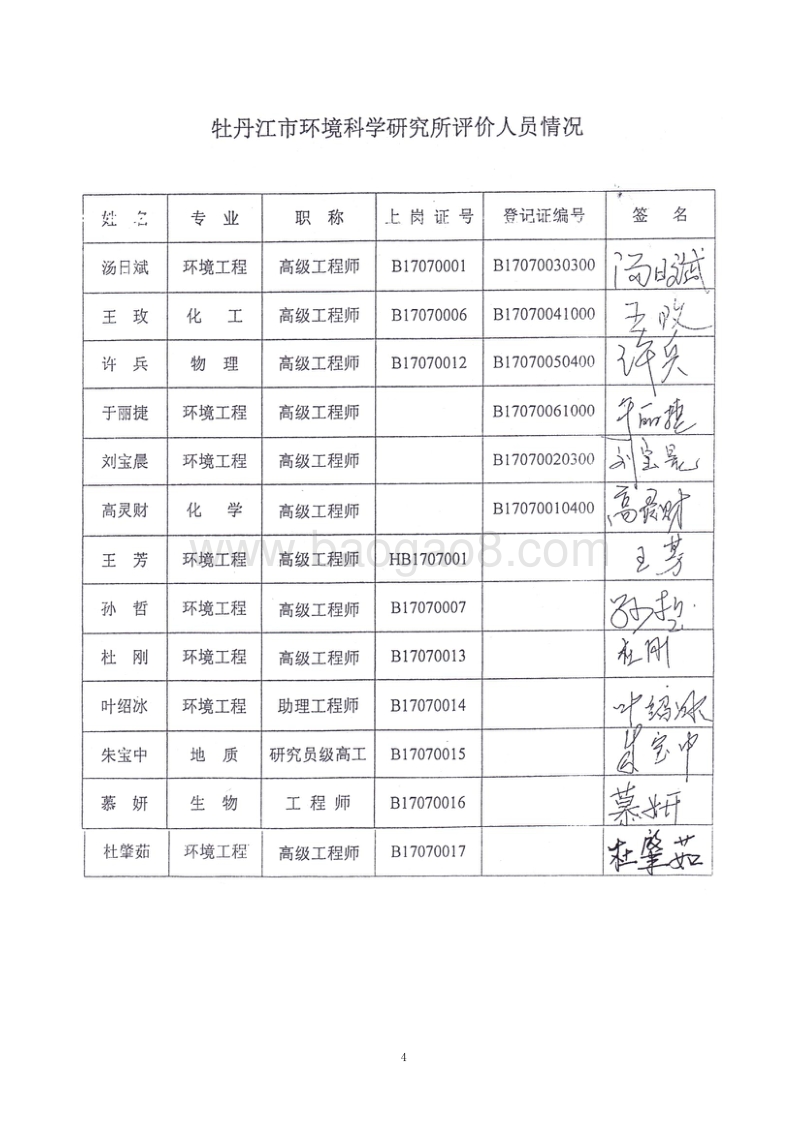 牡丹江市环境科学研究所评价人员情况
姓 名 专 业 职 称 上 岗 证 号 登记证编号 签 名
汤日斌 环境工程 高级工程师 B17070001 B17070030300 汤日斌
王 玫 化 工 高级工程师 B17070006 B17070041000 王玫
许 兵 物 理 高级工程师 B17070012 B17070050400 许兵
于丽捷 环境工程 高级工程师 B17070061000 于丽捷
刘宝晨 环境工程 高级工程师 B17070020300 刘宝晨
高灵财 化 学 高级工程师 B17070010400 高灵财
王 芳 环境工程 高级工程师 HB1707001 王芳
孙 哲 环境工程 高级工程师 B17070007 孙哲
杜 刚 环境工程 高级工程师 B17070013 杜刚
叶绍冰 环境工程 助理工程师 B17070014 叶绍冰
朱宝中 地 质 研究员级高工 B17070015 朱宝中
慕 妍 生 物 工 程 师 B17070016 慕妍
杜肇茹 环境工程 高级工程师 B17070017 杜肇茹
www.baogao8.com
4